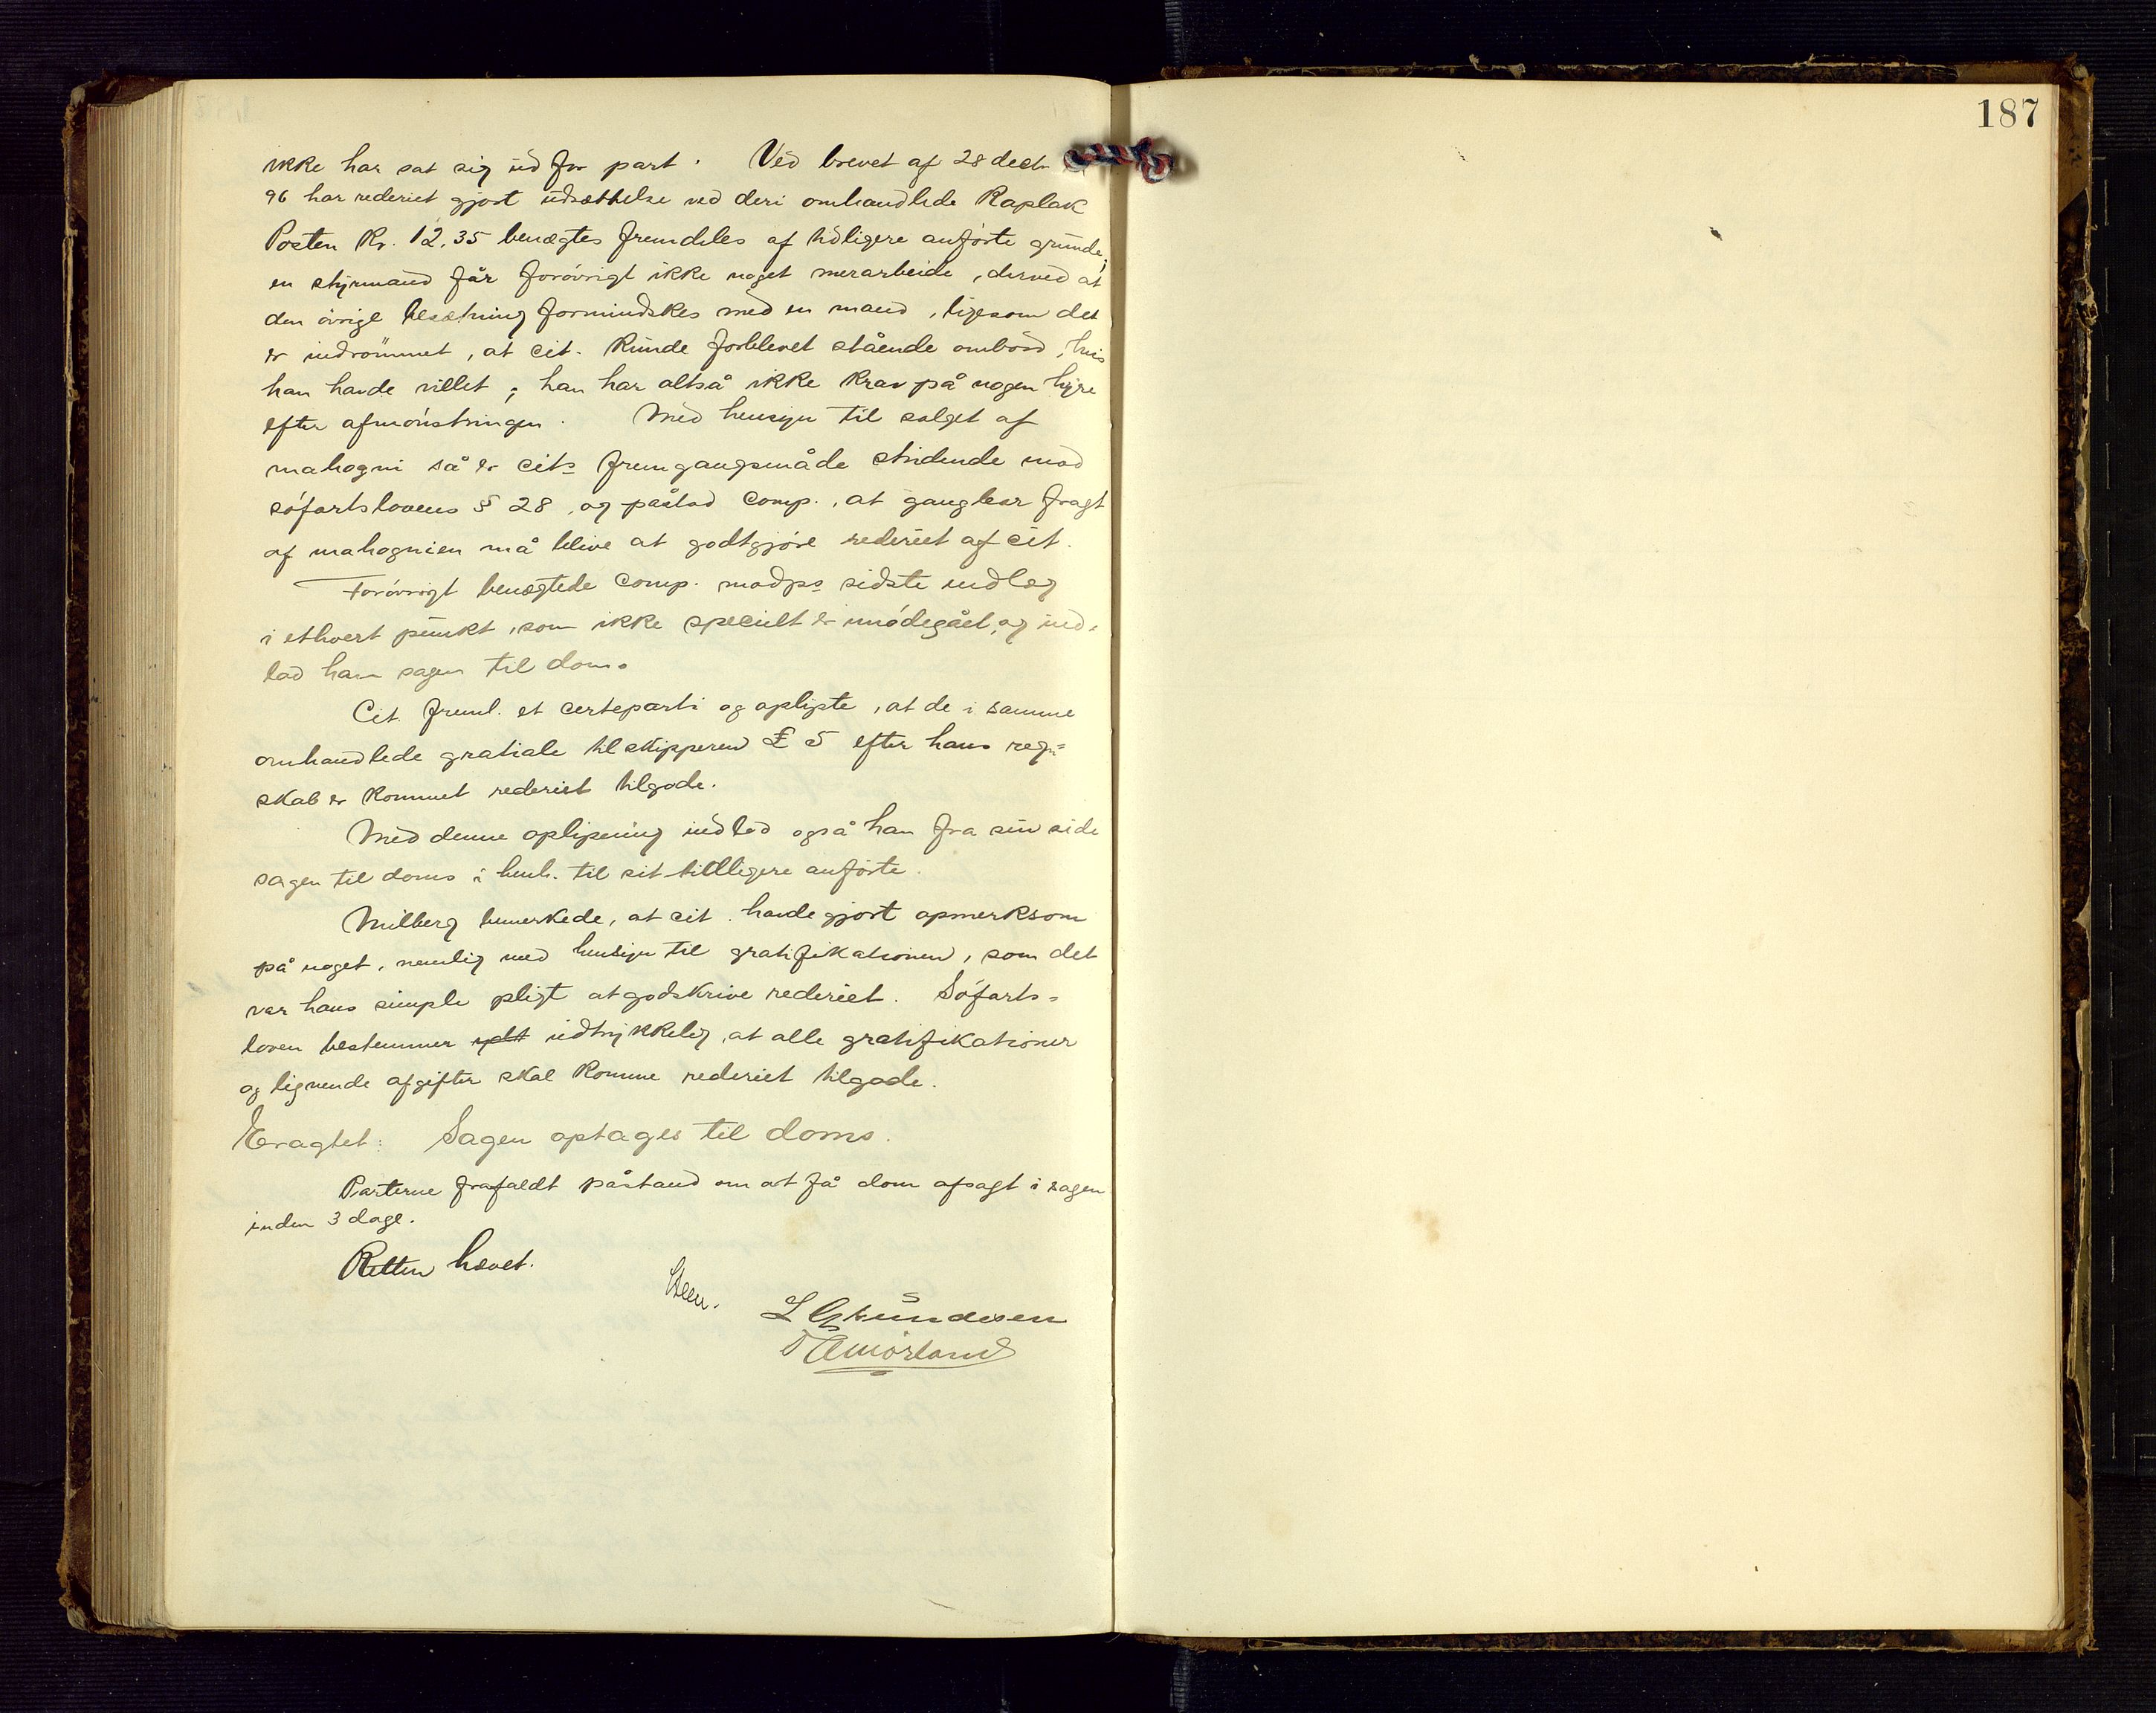 187
ikke har sat sig ud for part. Ved brevet af 28 decbr
96 har rederiet gjort udsættelse ved deri omhandlede Kaplak
Posten Kr. 12,35 benægtes fremdeles af tidligere anførte grunde;
en styrmand får forøvrigt ikke noget merarbeide, derved at
den øvrige besætning formindskes med en mand, ligesom det
er indrømmet, at cit. kunde forblevet stående ombord, hvis
han havde villet; han har altså ikke krav på nogen hyre
efter afmønstringen. Med hensyn til salget af
mahogni så er cits fremgangsmåde stridende mod
søfartslovens § 28, og påstod comp., at gangbar fragt
af mahognien må blive at godtgjøre rederiet af cit.
Forøvrigt benægtede comp. modps sidste indlæg
i ethvert punkt, som ikke specielt er imødegået, og ind-
lod han sagen til doms.
Cit. freml. et certeparti og oplyste, at de i samme
omhandlede gratiale til skipperen £ 5 efter hans regn-
skab er kommet rederiet tilgode.
Med denne oplysning indlod også han fra sin side
sagen til doms i henh. til sit tidligere anførte.
Milberg bemerkede, at cit. havde gjort opmerksom
på noget, nemlig med hensyn til gratifikationen, som det
var hans simple pligt at godskrive rederiet. Søfarts-
loven bestemmer udtrykkelig, at alle gratifikationer
og lignende afgifter skal komme rederiet tilgode.
Eragtet: Sagen optages til doms.
Parterne frafaldt påstand om at få dom afsagt i sagen
inden 3 dage.
Retten hævet.
Steen.
L Gkundesen
Mørland